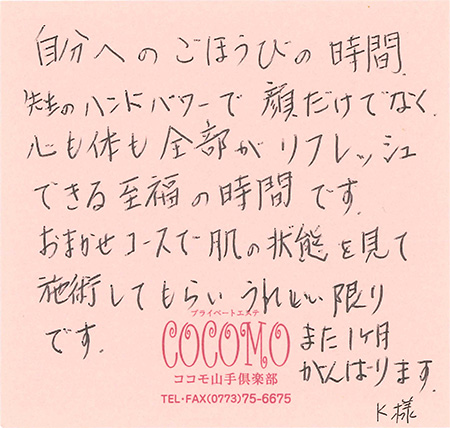 自分へのごほうびの時間
先生のハンドパワーで顔だけでなく
心も体も全部がリフレッシュ
できる至福の時間です。
おまかせコースで肌の状態を見て
施術してもらいうれしい限り
です。
プライベートエステ
COCOMO
ココモ山手倶楽部
TEL・FAX(0773)75-6675
また1ヶ月
がんばります。
K様